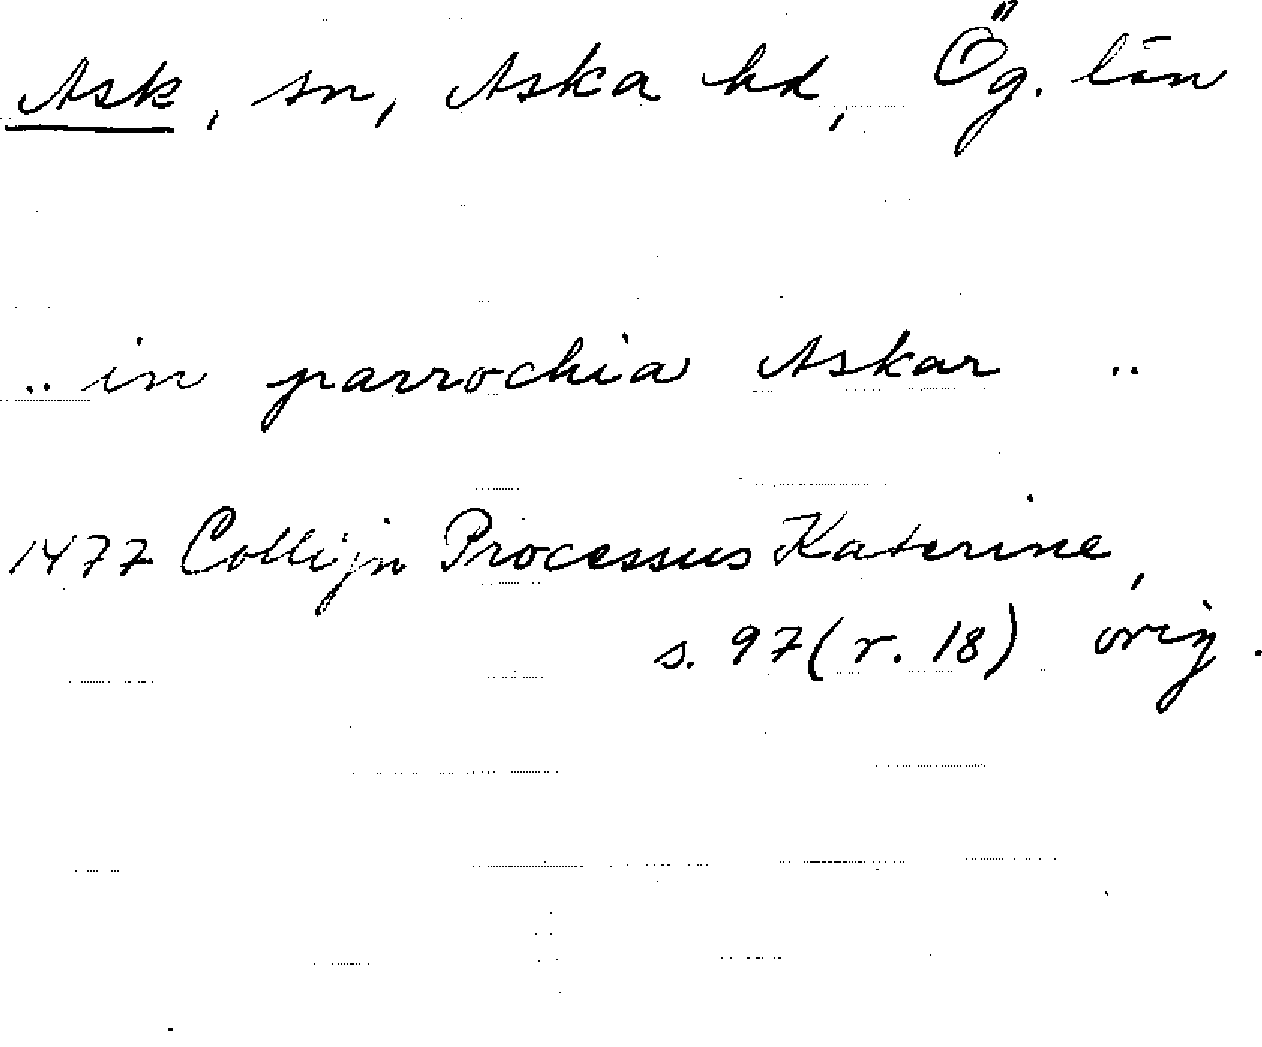 Ask, sn, Aska hd, Ög. län
.. in parrochia Askar ..
1477 Collijn Processus Katerine,
s. 97 (r. 18) orig.